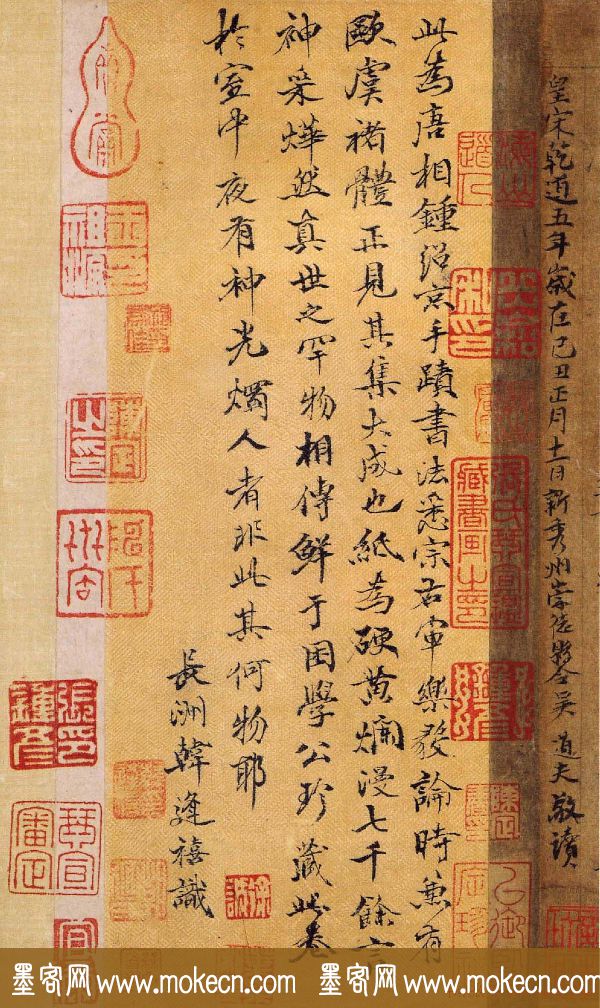 皇宋乾道五年歲在己丑正月十一日新秀州崇德縣令吳道夫敬讀
此為唐相鍾紹京手蹟書法悉宗右軍樂毅論時兼有
歐虞褚體正見其集大成也紙為硬黄爛漫七千餘言
神采燁然真世之罕物相傳鮮于困學公珍藏此卷
於室中夜有神光燭人者非此其何物耶
長洲韓逢禧識
墨客网 www.mokecn.com 墨客网 www.mokecn.com